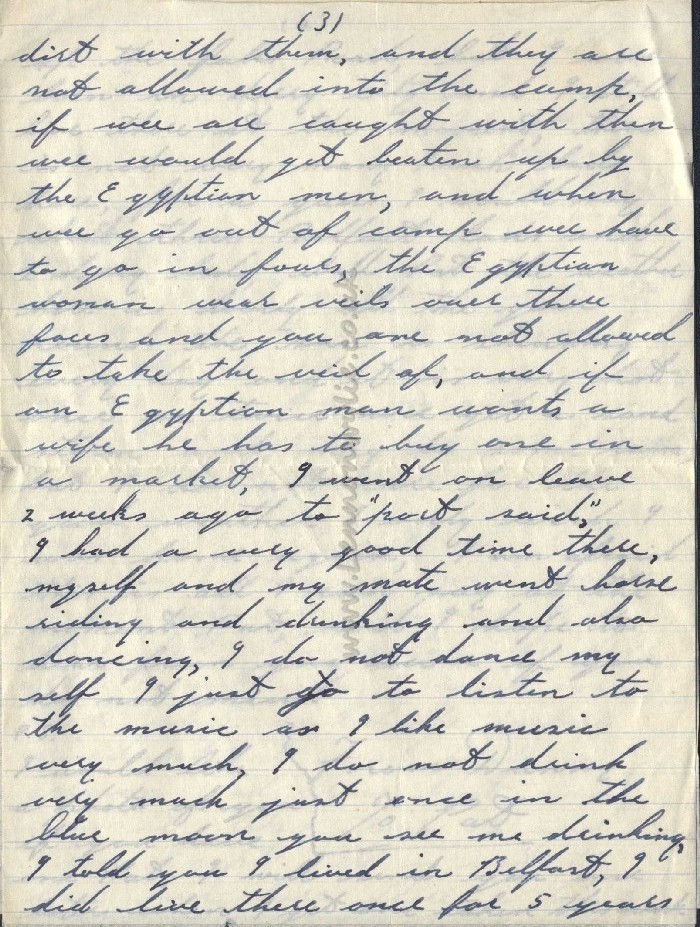 (3)
dirt with them, and they are
not allowed into the camp,
if wee are caught with then
wee would get beaten up by
the Egyptian men, and when
wee go out of camp wee have
to go in fours, the Egyptian
woman wear veils over there
faces and you are not allowed
to take the veil of, and if
an Egyptian man wants a
wife he has to buy one in
a market, I went on leave
2 weeks ago to "port said,"
I had a very good time there,
myself and my mate went horse
riding and drinking and also
dancing, I do not dance my
self I just go to listen to
the music as I like music
very much, I do not drink
very much just once in the
blue moon you see me drinking,
I told you I lived in Belfast, I
did live there once for 5 years